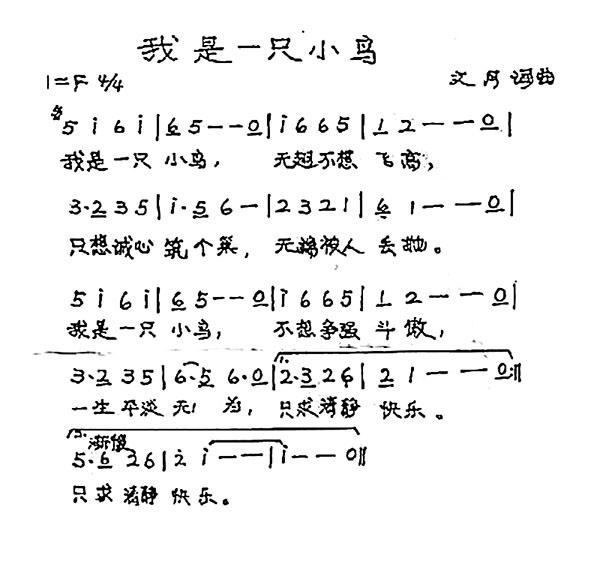 我是一只小鸟
1=F 4/4 文月词曲
5 i 6 i | 6 5 - - 0 | i 6 6 5 | 1 2 - - 0 |
我是一只 小鸟， 无翅不想 飞高，
3·2 3 5 | i·5 6 - | 2 3 2 1 | 6 1 - - 0 |
只想诚心 筑个巢， 无端被人 丢抛。
5 i 6 i | 6 5 - - 0 | i 6 6 5 | 1 2 - - 0 |
我是一只 小鸟， 不想争强 斗傲，
3·2 3 5 | 6·5 6·0 | 1. 2·3 2 6 | 2 1 - - 0 :||
一生平淡 无为， 只求清静 快乐。
2. 渐慢
5·6 2 6 | 2 i - - | i - - 0 ||
只求清静 快乐。